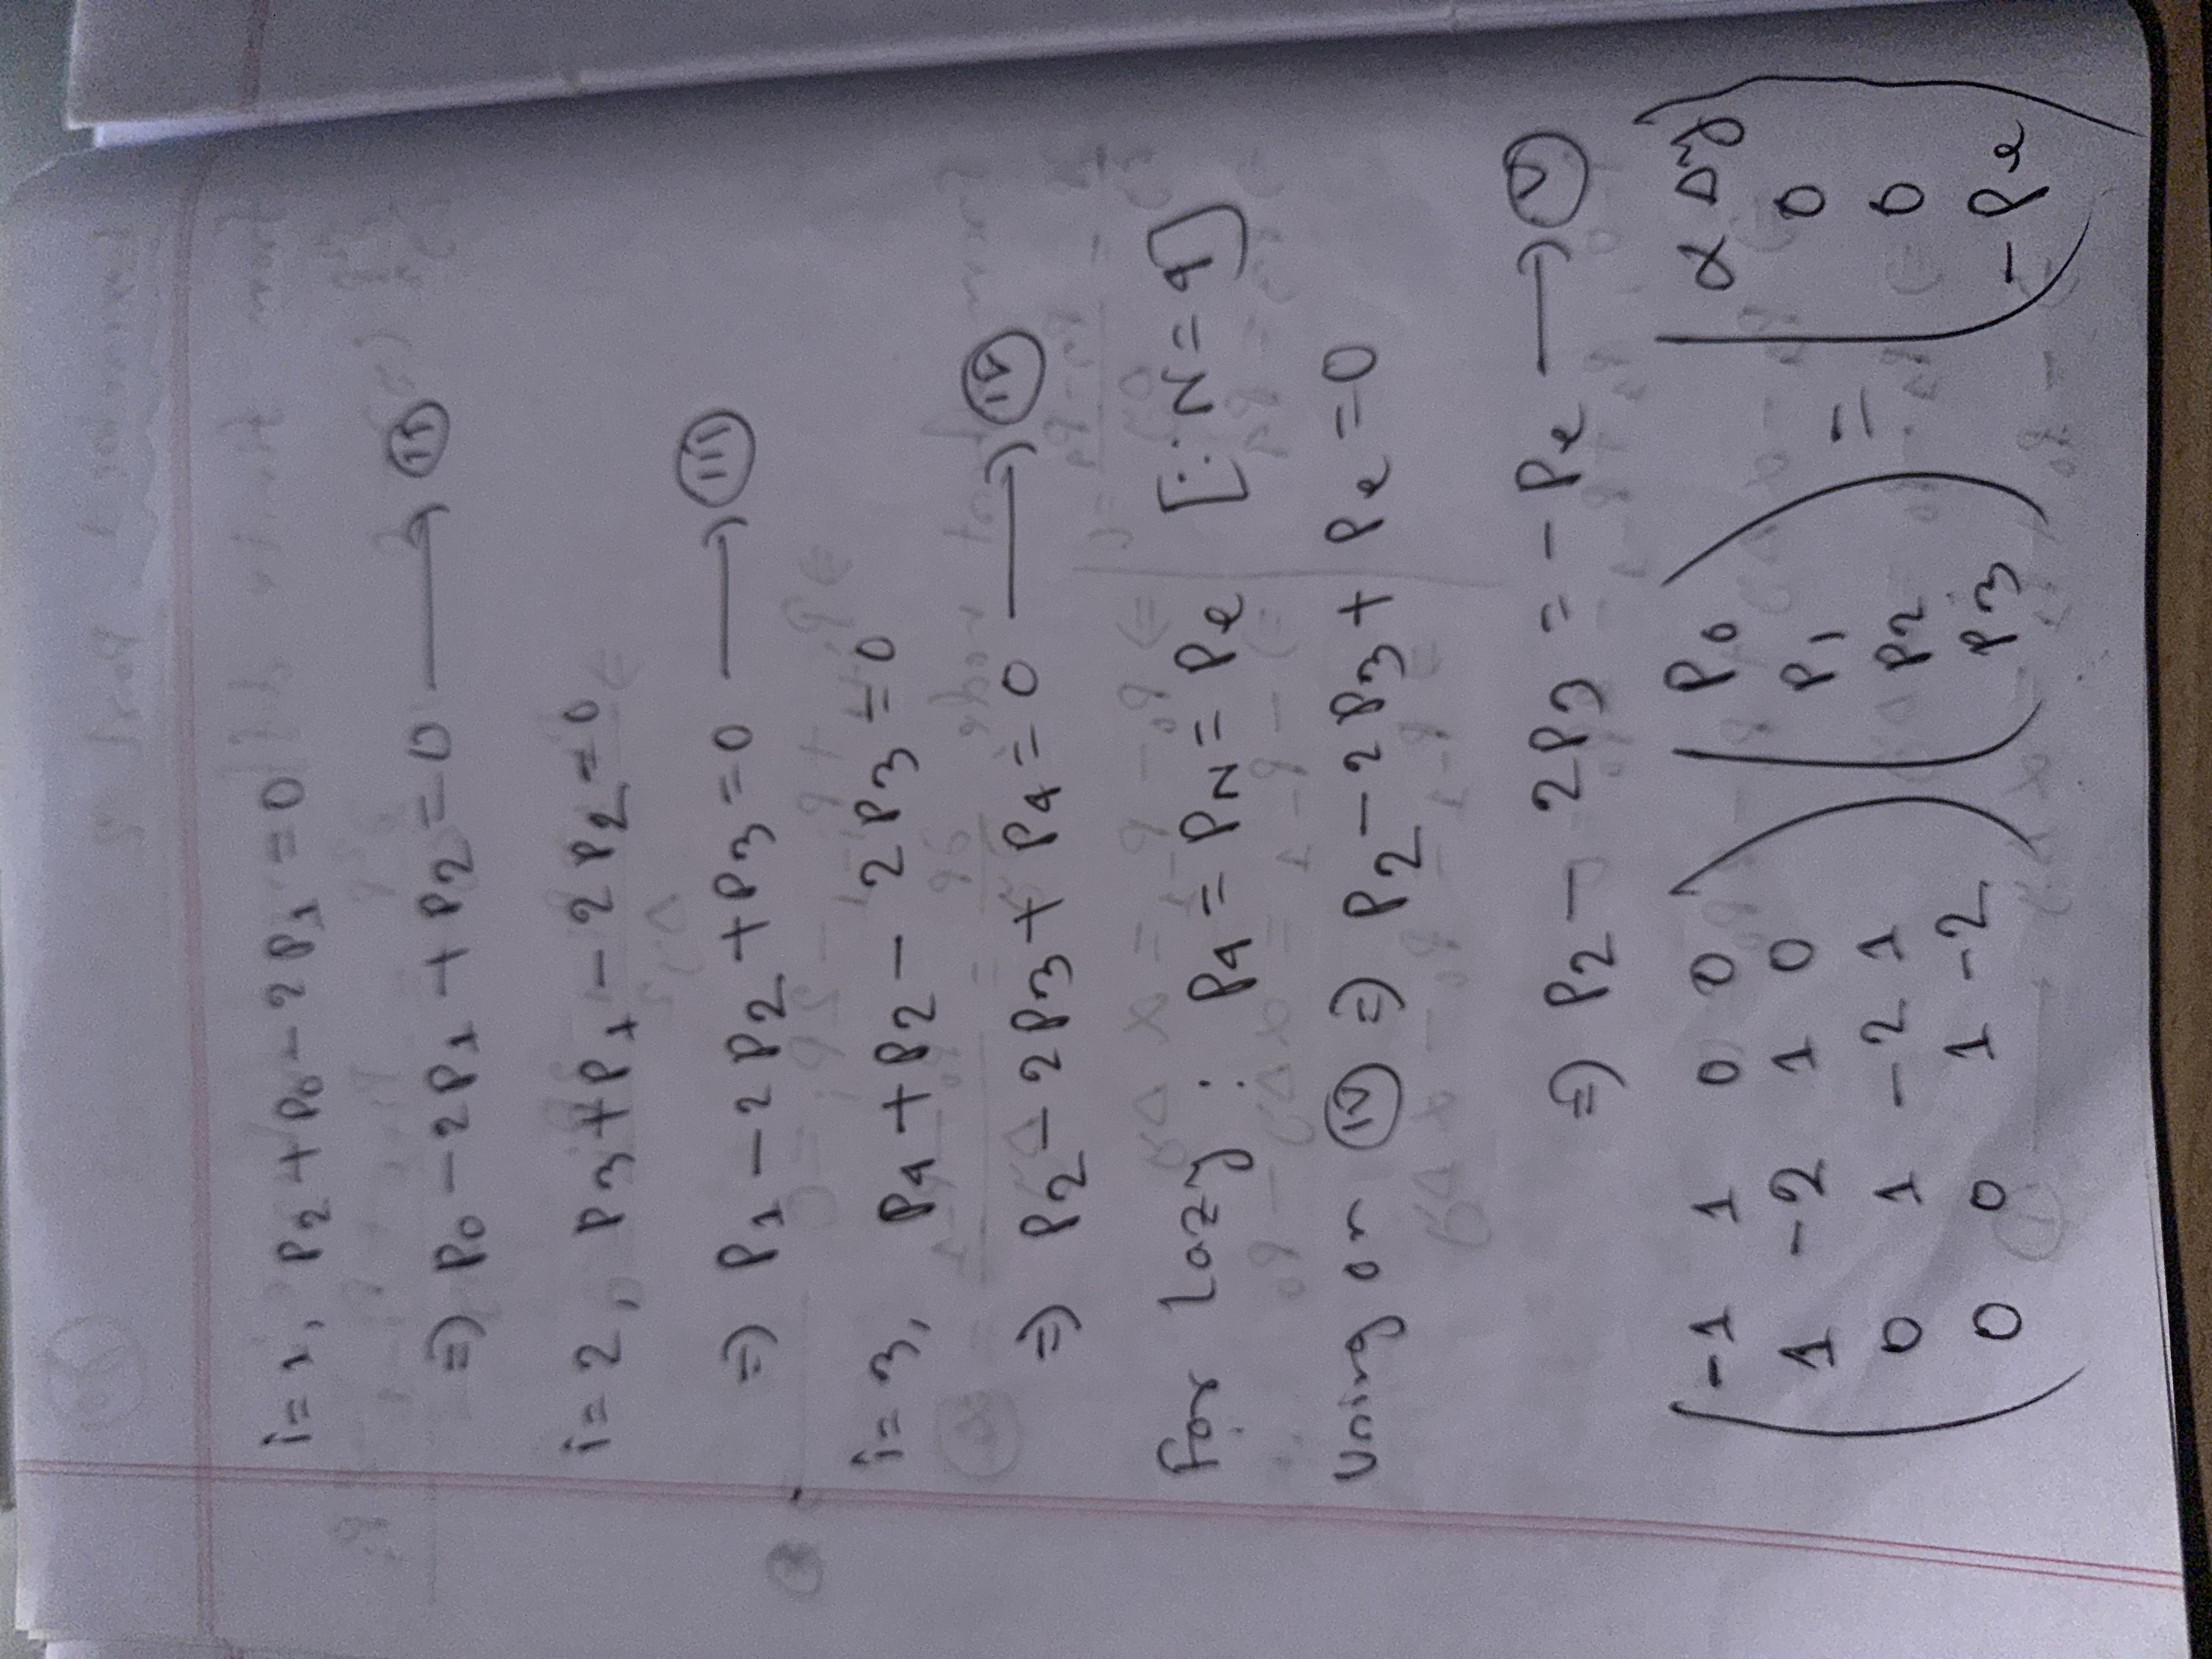 i=1, P₂ + P₀ − 2P₁ = 0
⇒ P₀ − 2P₁ + P₂ = 0 ⟶ (ii)
i=2, P₃ + P₁ − 2P₂ = 0
⇒ P₁ − 2P₂ + P₃ = 0 ⟶ (iii)
i=3, P₄ + P₂ − 2P₃ = 0
⇒ P₂ − 2P₃ + P₄ = 0 ⟶ (iv)
For Lazy : P₄ = P_N = Pₑ [∵ N=4]
Using on (iv) ⇒ P₂ − 2P₃ + Pₑ = 0
⇒ P₂ − 2P₃ = −Pₑ ⟶ (v)
(−1 1 0 0) (P₀) = (α Δy)
(1 −2 1 0) (P₁) (0)
(0 1 −2 1) (P₂) (0)
(0 0 1 −2) (P₃) (−Pₑ)